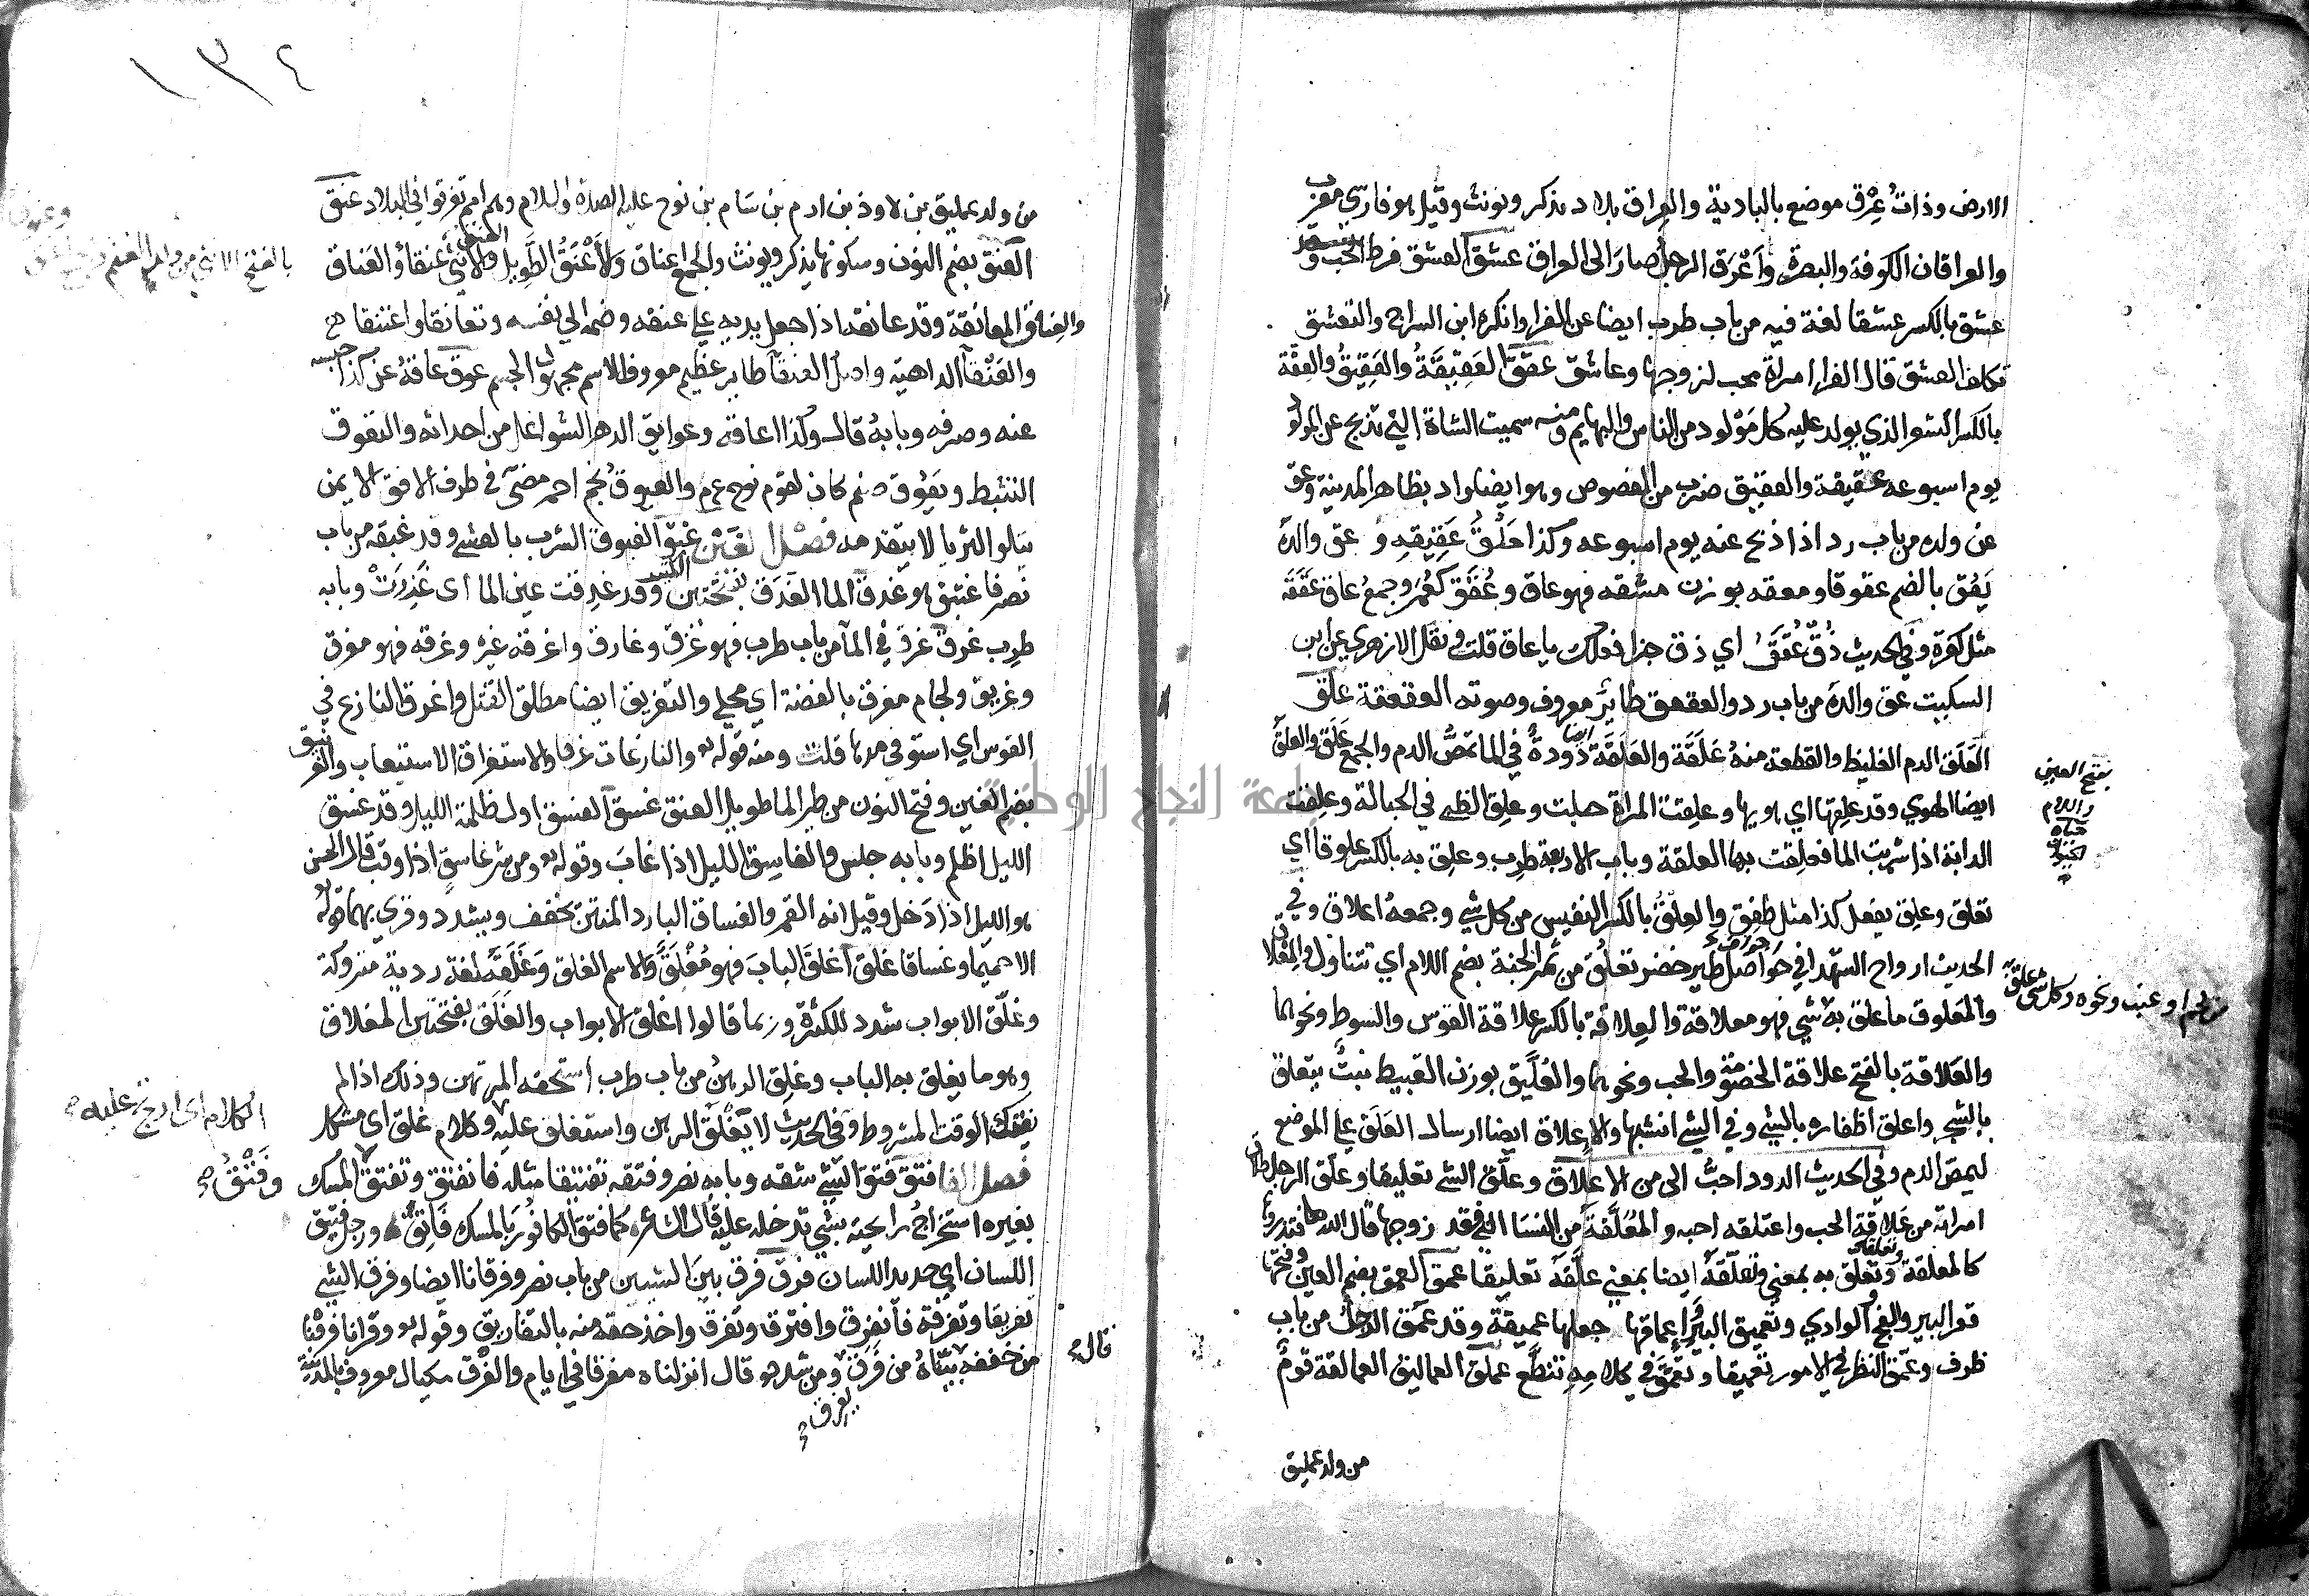 الارض وذات عِرْق موضع بالبادية والعراق بلاد يذكر ويونث وقيل هو فارسي معرب
والعراقان الكوفة والبصرة وأعْرَق الرجل صار الى العراق عشق العشق فرط الحب وقد
عشق بالكسر عشقا لغة فيه من باب طرب ايضا عن الفرا وانكره ابن السراج والتعشق
تكلف العشق قال الفرا امراة محب لزوجها وعاشق عقق العَقِيقَةُ والعَقِيقُ والعِقَّة
بالكسر الشعر الذي يولد عليه كل مَوْلود من الناس والبهايم ومنه سميت الشاة التي تذبح عن المولود
يوم اسبوعه عقيقة والعقيق ضرب من الفصوص وهو ايضا واد بظاهر المدينة وعق
عن ولده من باب رد اذا ذبح عنه يوم اسبوعه وكذا حَلْقُ عَقِيقِهِ و عق والدَهُ
يَعُق بالضم عقوقا ومعقه بوزن مشقه فهو عاق وعُقَق كعُمَر وجمعُ عاق عَقَقَة
مثل كفَرَة وفي الحديث ذُقْ عُقَقُ اي ذق جزا فعلك يا عاق قلت ونقل الازهري عن ابن
السكيت عق والدَهُ من باب رد والعقعق طايرٌ معروف وصوته العقعقة علق
العَلَق الدم الغليظ والقطعة منهُ عَلَقَة والعَلَقَة ايضا دُودةٌ في الما تمصُّ الدم والجمع عَلَق والعلقُ
ايضا الهوي وقد علِقها اي هويها وعلِقت المراة حبلت وعلِق الظبي في الحبالة وعلِقت
الدابة اذا شربت الما فعلقت بها العلقة وباب الاربعة طرِب وعلِق به بالكسر علوقا اي
تعلق وعلِق يفعل كذا مثل طفِق والعِلقُ بالكسر النفيس من كل شي وجمعهُ اعلاق وفي
الحديث ارواح الشهدا في حَواصل طير خضر تعلُق من ثمر الجنة بضم اللام اي تتناول والمِعلاق
والمعلوق ما علق به شي فهو معلاقة والعِلاقة بالكسر علاقة القوس والسوط ونحوهما
والعَلاقة بالفتح علاقة الخصومة والحب ونحوهما والعُلَّيق بوزن القبيط نبتٌ يتعلق
بالشجر واعلق اظفاره بالشي وفي الشي انشبها والاعلاق ايضا ارسال العَلَق على الموضع
ليمصّ الدم وفي الحديث الدود احبُّ الى من الاعلاق وعلّق الشي تعليقا وعلِق الرجل فلان
امراته من عَلاقةِ الحب واعتلقه احبه والمُعَلَّقَة من النسا التي فقد زوجها قال الله تعا فتذروها
كالمعلقة وتعلّق به بمعنى وتعلّقَهُ ايضا بمعنى علّقَهُ تعليقا عمق العمق بضم العين وفتحها
قعر البير والفج والوادي وتعميق البيْرِ وإعماقها جعلها عميقة وقد عَمُق الدحلُ من باب
ظرف وعمّق النظر في الامور تعميقا وتعمَّق في كلامِهِ تنطَّع عملق العماليق العمالقة قومٌ
من ولد عمليق
بفتح العين
واللام
من لحم او عنب ونحوه وكل شي علق به
١٣٤
من ولد عمليق بن لاوذ بن ارم بن سَام بن نوح عليه الصلاة والسلام وهم امم تفرقوا في البلاد عنق
العنق بضم النون وسكونها يذكر ويونث والجمع اعناق والأعْنَقُ الطَويل العنق والانثى عنقاءُ والعَناق
بالفتح الانثى من ولد المعز
والعِناق المعانقة وقد عانقه اذا جعل يديه على عنقه وضمه الي نفسه وتعانقا واعتنقا
والعَنْقاءُ الداهية واصل العنقا طاير عظيم معروف الاسم مجهول الجسم عوق عاقهُ عن كذا حبسه
عنه وصرفه وبابهُ قال وكذا اعاقه وعوايق الدهر الشواغل من احداثه والتعوق
التثبط ويَعُوق صنم كان لقوم نوح عم والعيوق نجم احمر مضى في طرف الافق الايمن
يتلو الثريا لا يتقدمه فصل الغين غبق الغبوق الشرب بالعشي وقد غبقه من باب
نصر فاغتبق هو غدق الما الغدَق بفتحتين الكثير وقد غدِقت عين الما اى غَزِرَتْ وبابه
طرِب غرق غرِق في المآ من باب طرب فهو غرِق وغارق واغرقه غيره وغرقه فهو مغرق
وغريق ولجام مغرق بالفضة اي محلي والتغريق ايضا مطلق القتل واغرق النازع في
القوس اي استوفى مدها قلت ومنه قوله تعا والنازعات غرقا والاستغراق الاستيعاب والغرنيق
بضم الغين وفتح النون من طير الما طويل العنق غسق الغسق اول ظلمة الليل وقد غسق
الليل اظلم وبابه جلس والغاسِق الليل اذا غابَ وقوله تعا ومن شر غاسق اذا وقب قال الحسن
هو الليل اذا دَخل وقيل انه القمر والغساق البارد المنتن يخفف ويشدد وقري بهما قوله
الا حميما وغساقا غلق اغلقَ البابَ فهو مُغْلَقٌ والاسم الغلق وَغَلَقَهُ لغة ردية متروكة
وغلّق الابواب شدد للكثرة وربما قالوا اغلق الابواب والغَلَق بفتحتين المغلاق
وهو ما يغلق به الباب وغلِق الرهنُ من باب طرب استحقه المرتهن وذلك اذا لم
يفتكك الوقت المشروط وفي الحديث لا يَغْلَقُ الرهن واستغلق عليه وكلام غلق اى مشكل
الكلام اى ارتج عليه
فصل الفا فتق فتقَ الشي شقه وبابه نصر وفتقه تفتيقا مثله فانفتق وتفتق وفَتْقُ المسك
بغيره استخراجُ رايحته بشي تدخله عليه قال الشاعر كما فتق الكافُورَ بالمسك فاتِقُه ورجل فتيق
اللسان اي حديد اللسان فرق فرق بينَ الشيين من باب نصر وفرقانا ايضا وفرق الشي
تفريقا وتفرقة فانفرق وافترق وتفرق واخذ حقه منه بالتفاريق وقوله تعا وقرانا فرقناه
من خففه قال بيّناهُ من فَرَق ومن شدده قال انزلناه مفرقا في ايام والفَرْق مكيال معروف بالمدينة
جامعة النجاح الوطنية